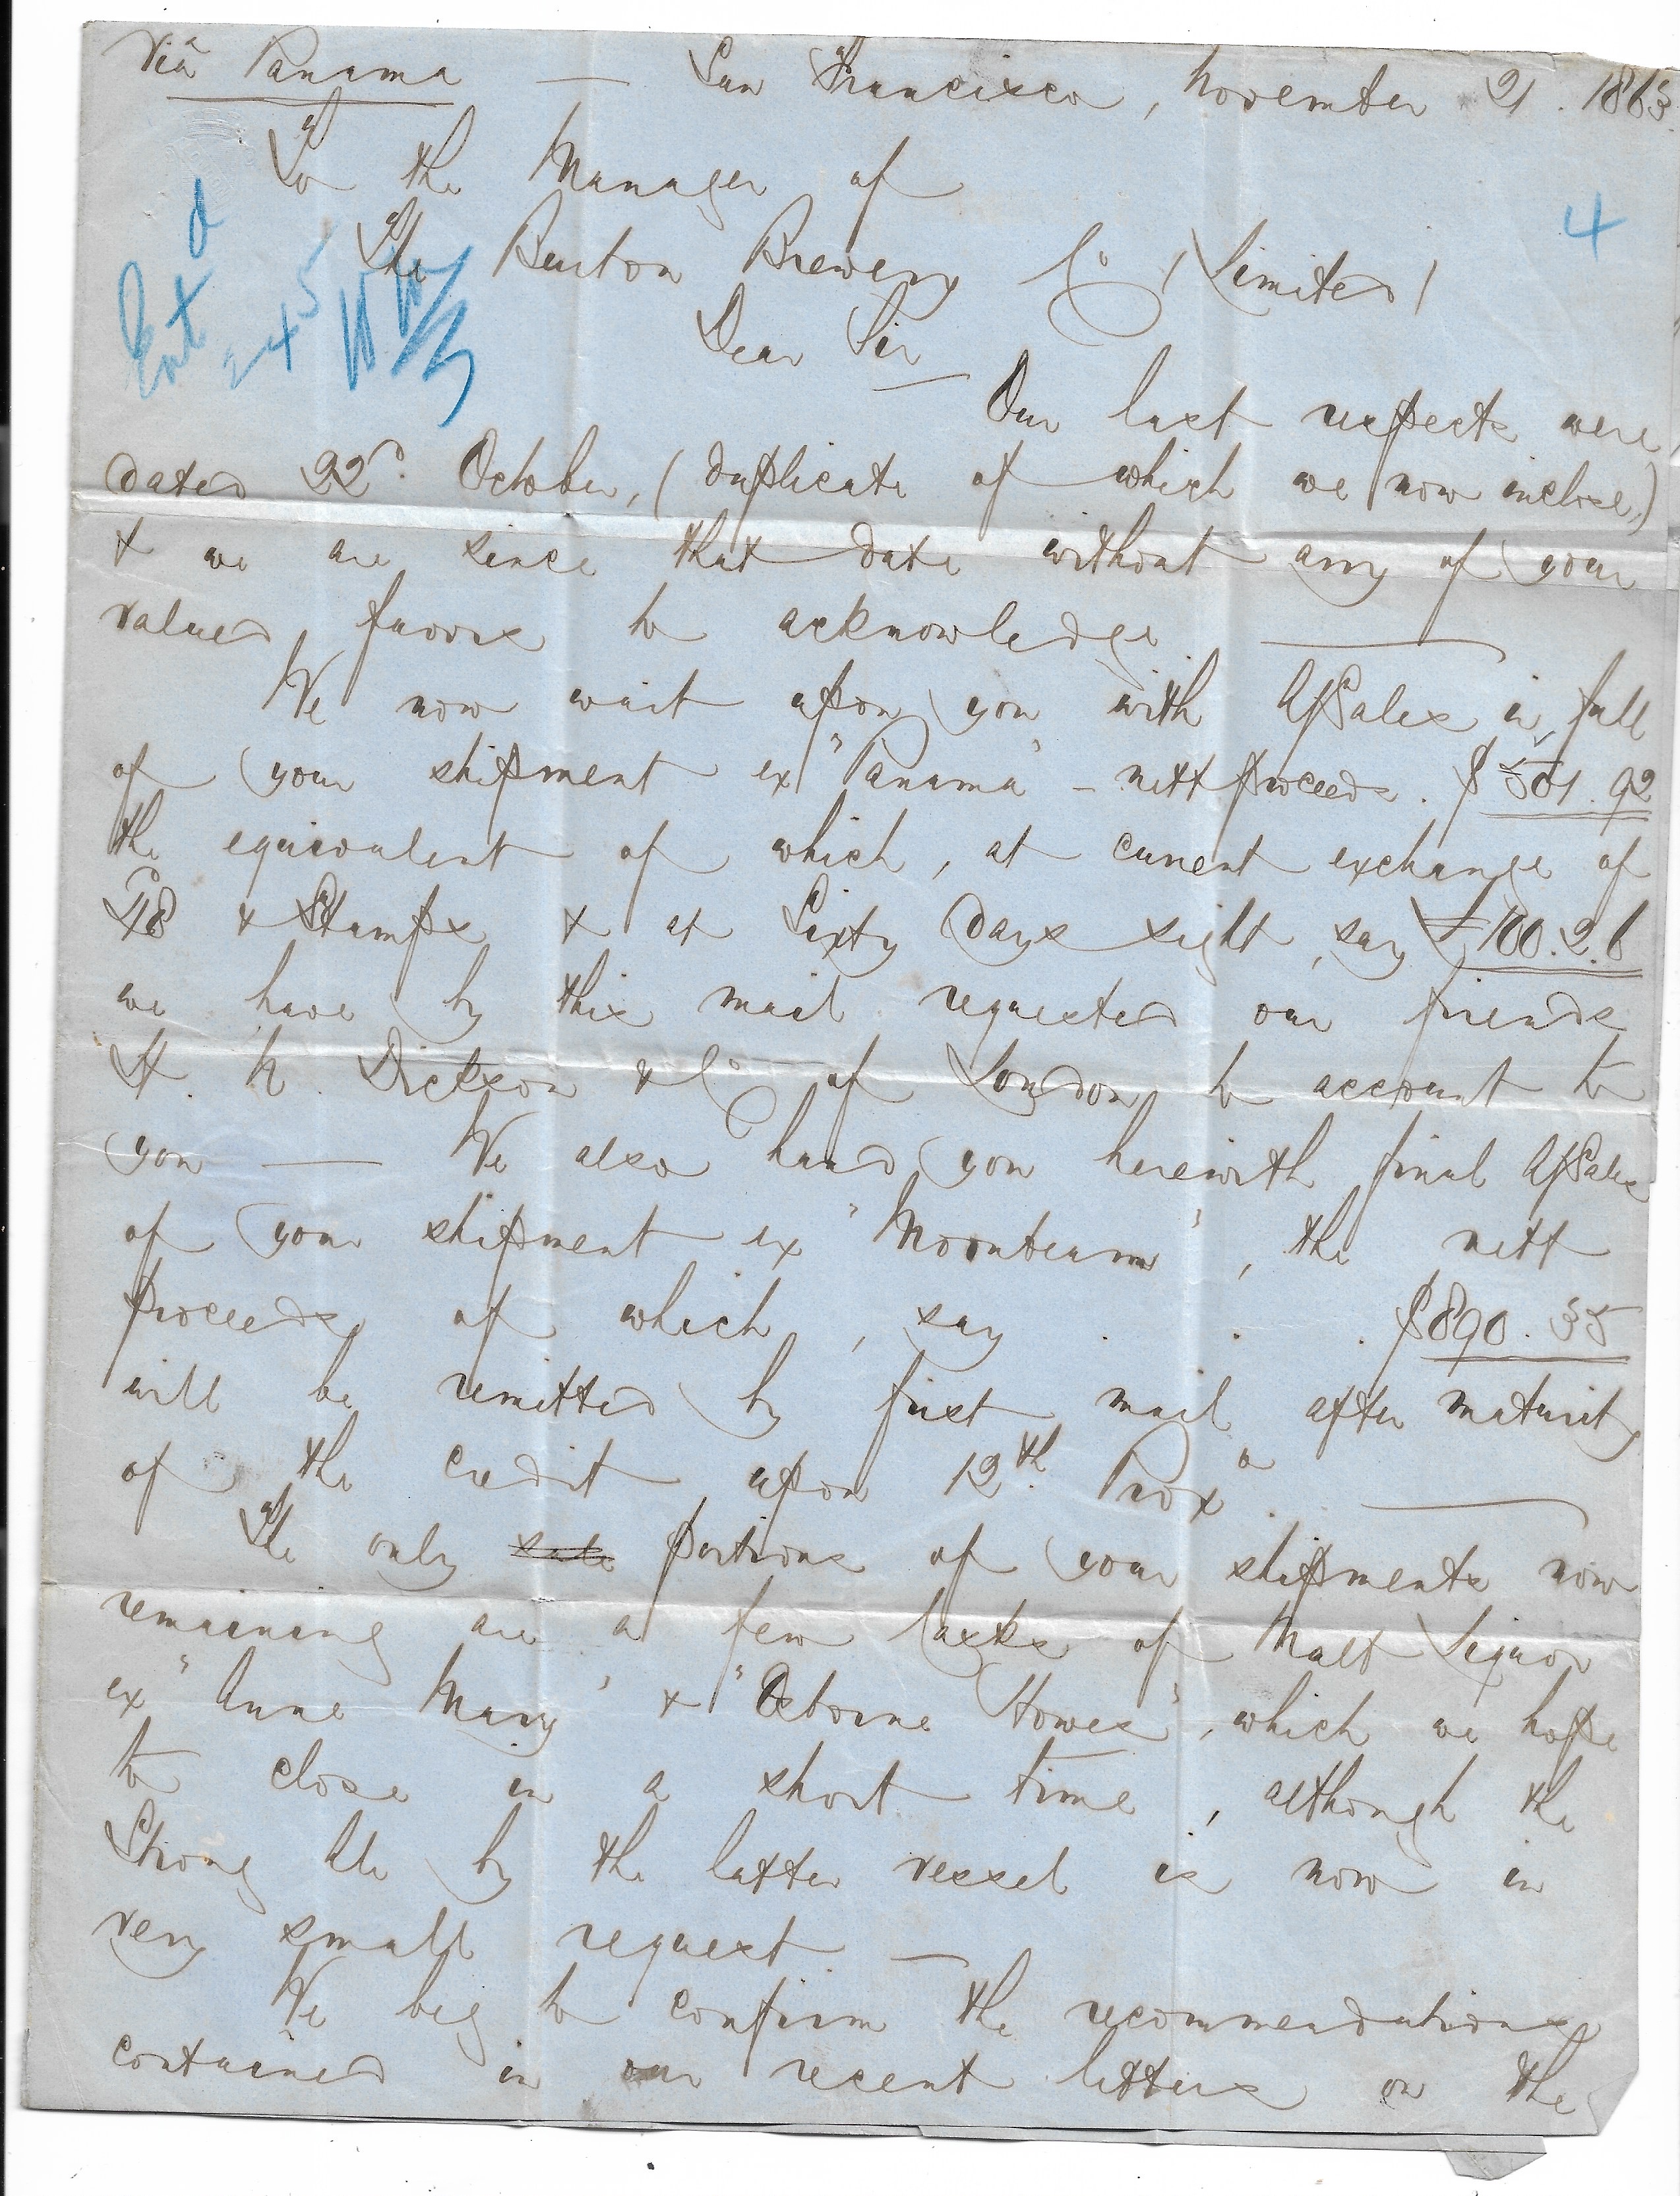 Viâ Panama — San Francisco, November 21. 1863.
To the Manager of
The Burton Brewery Co (Limited)
4
Entd
245
Dear Sir
Our last respects were
dated 22d. October, (duplicate of which we now inclose,)
& we are since that date without any of your
valued favors to acknowledge —
We now wait upon you with A/Sales in full
of your shipment ex "Panama" - nett proceeds. $501.92
the equivalent of which, at current exchange of
48 & Stamps & at Sixty days sight, say £100.2.6
we have by this mail requested our friends
H. N. Dickson & Co of London to account to
you — We also hand you herewith final A/Sales
of your shipment ex "Moonbeam", the nett
proceeds of which, say . . . $890.35
will be remitted by first mail after maturity
of the credit upon 12th. Proxo. —
The only sale portions of your shipments now
remaining are a few casks of Malt Liquor
ex "Anne Mary" & "Osborne Howes", which we hope
to close in a short time, although the
Strong Ale by the latter vessel is now in
very small request —
We beg to confirm the recommendations
contained in our recent letters on the